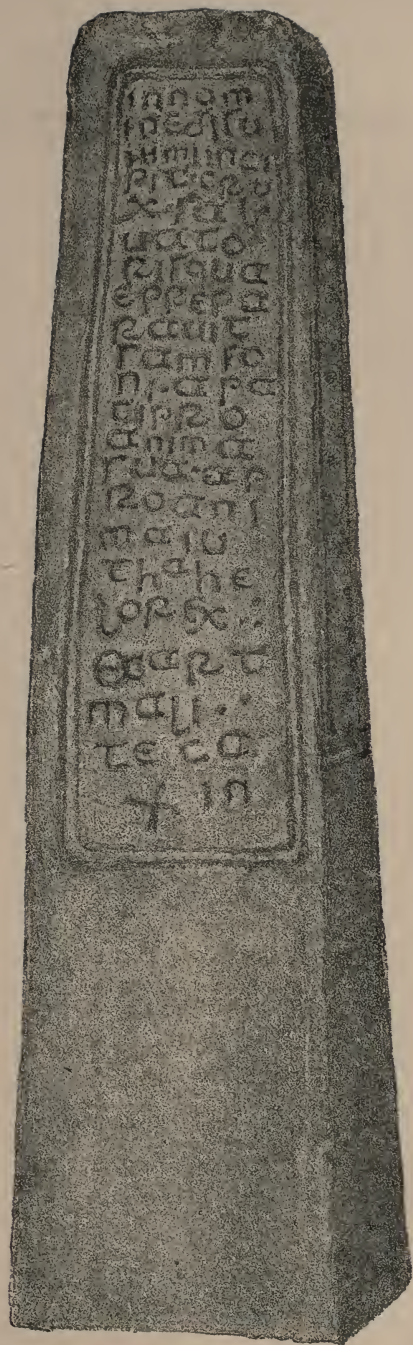 innom
inedisu
mmiinci
pitcru
x sal
uato
risqua
eprepa
rauit
samso
niapa
tipro
anima
sua ap
roani
maiu
thahe
lorex :·
&art
mali ··
teca
+ in